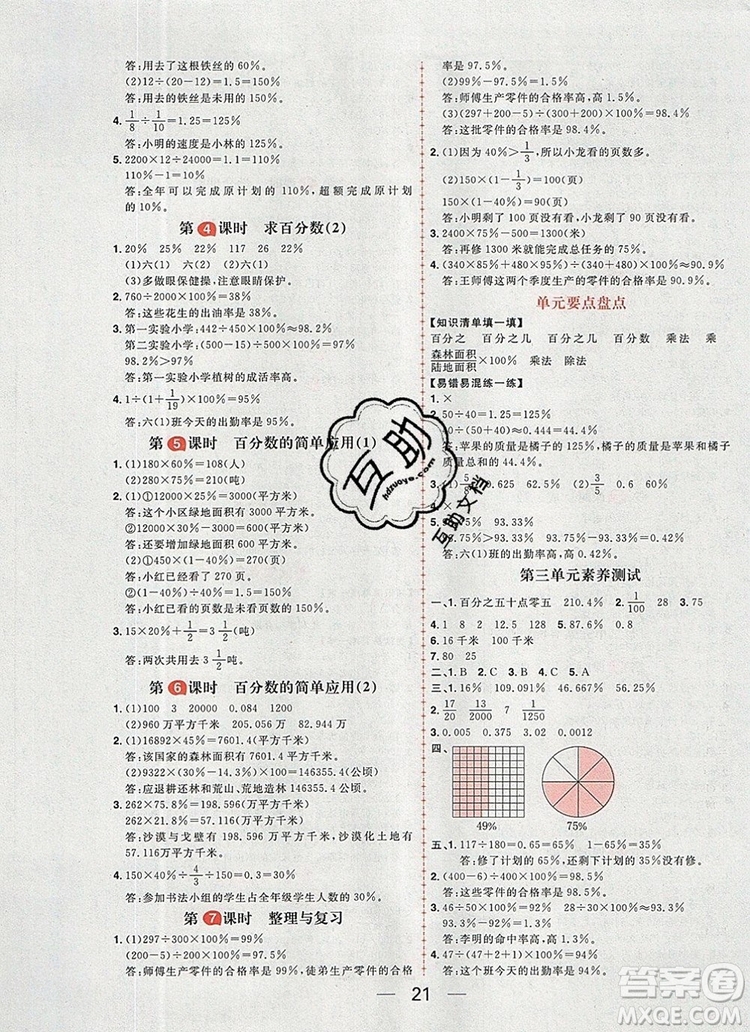 答:用去了这根铁丝的 60%。
(2)12÷(20-12)=1.5=150%
答:用去的铁丝是未用的 150%。
4. 1/8÷1/10=1.25=125%
答:小明的速度是小林的 125%。
5. 2200×12÷24000=1.1=110%
110%-1=10%
答:全年可以完成原计划的 110%,超额完成原计划
的 10%。
第 4 课时 求百分数(2)
1. 20% 25% 22% 117 26 22%
(1)六(1) 六(2) 六(1)
(3)多做眼保健操,注意眼睛保护。
2. 760÷2000×100%=38%
答:这些花生的出油率是 38%。
3. 第一实验小学:442÷450×100%≈98.2%
第二实验小学:(500-15)÷500×100%=97%
98.2%>97%
答:第一实验小学植树的成活率高。
4. 1÷(1+1/19)×100%=95%
答:六(1)班今天的出勤率是 95%。
第 5 课时 百分数的简单应用(1)
1. (1)180×60%=108(人)
(2)280×75%=210(吨)
2. (1)①12000×25%=3000(平方米)
答:这个小区绿地面积是 3000 平方米。
②12000×40%-3000=1800(平方米)
答:还要增加绿地面积 1800 平方米。
(2)①450×40%=180(页)
答:小红已看的页数是 180 页。
②(1-40%)÷40%=1.5=150%
答:小红已看的页数与未看的页数的
3. 15×20%+1/2=3 1/2(吨)
答:两次共用去 3 1/2 吨。
第 6 课时 百分数的简单应用(2)
1. (1)100 3 20000 0.084 1200
(2)960 万平方千米 205.056 82.944 万平方千米
2. (1)16892×45%=7601.4(万公顷)
答:该国家的森林面积是 7601.4 万公顷。
(2)9322×(30%-14.3%)×10%=146355.4(公顷)
答:应退耕还林和荒山、荒地造林 146355.4 公顷。
3. 262+262×8%=198.596(万平方千米)
262×21.8%=57.116(万平方千米)
答:沙漠与戈壁有 198.596 万平方千米,沙漠化土地有
57.116万平方千米。
4. 150÷(150+350)×100%=30%
答:参加书法小组的学生占全年级学生人数的 30%。
第 7 课时 整理与复习
1. (1)297÷300×100%=99%
(200-5)÷200×100%=97.5%
答:师傅生产零件的合格率是 99%,徒弟生产零件的合格
率是 97.5%。
(2)99%-97.5%=1.5%
答:师傅生产零件的合格率高,高 1.5%。
(3)(297+200-5)÷(300+200)×100%=98.4%
答:这批零件的合格率是 98.4%。
2. (1)因为 40%>1/3,所以小龙看的页数多。
(2)150×(1-1/3)=100(页)
150×(1-40%)=90(页)
答:小明剩了 100 页没看,小龙剩了 90 页没看。
3. 2400×(75%-25%)=1300(米)
答:再修 1300 米就能完成总任务的 75%。
4. (340×85%+480×95%)÷(340+480)×100%≈90.9%
答:王师傅这两个季度生产的零件的合格率是 90.9%。
单元要点盘点
【知识清单填一填】
百分之 百分之几 百分之几 百分数 乘法 乘
森林面积/陆地面积×100% 乘法 除法
【易错易混练一练】
1. ×
2. 50÷40=1.25=125%
40÷(50+40)≈0.444=44.4%
答:苹果的质量是橘子的质量的 125%,橘子的质量占
总质量的 44.4%。
3. (1)50% (2)3/5 0.6 60%
5. 93.75% 93.33%
93.75%>93.33%
答:六(1)班的出勤率高。
第三单元素养测试
一、1. 百分之五十点零五 210.4% 1/100 3.75%
4. 1 8 12.5 128 5. 87.6% 0.8
6. 16 千米 100 千米
7. 80 25
二、1. B 2. C 3. B 4. A
三、1. 16% 109.9% 45% 110%
2. 17/20 13/2000 7/10 1/1250
3. 0.005 0.375 3.02 0.0012
四、
49% 75%
五、1. 117÷180=0.65=65% 1-65%=35%
答:修了计划的 65%,还剩计划的 35%。
2. (400-6)÷400×100%=98.5%
答:这些零件的合格率是 98.5%。
3. 46÷50×100%=92% 56÷60×100%≈93.3%
93.3%-92%=1.3%
答:李明的命中率高,高 1.3%。
4. 47÷(47+1+2)×100%=94%
答:这个班今天的出勤率是 94%。
21
互助
hdzuoye.com
互助文档
答案圈
MXQE.COM